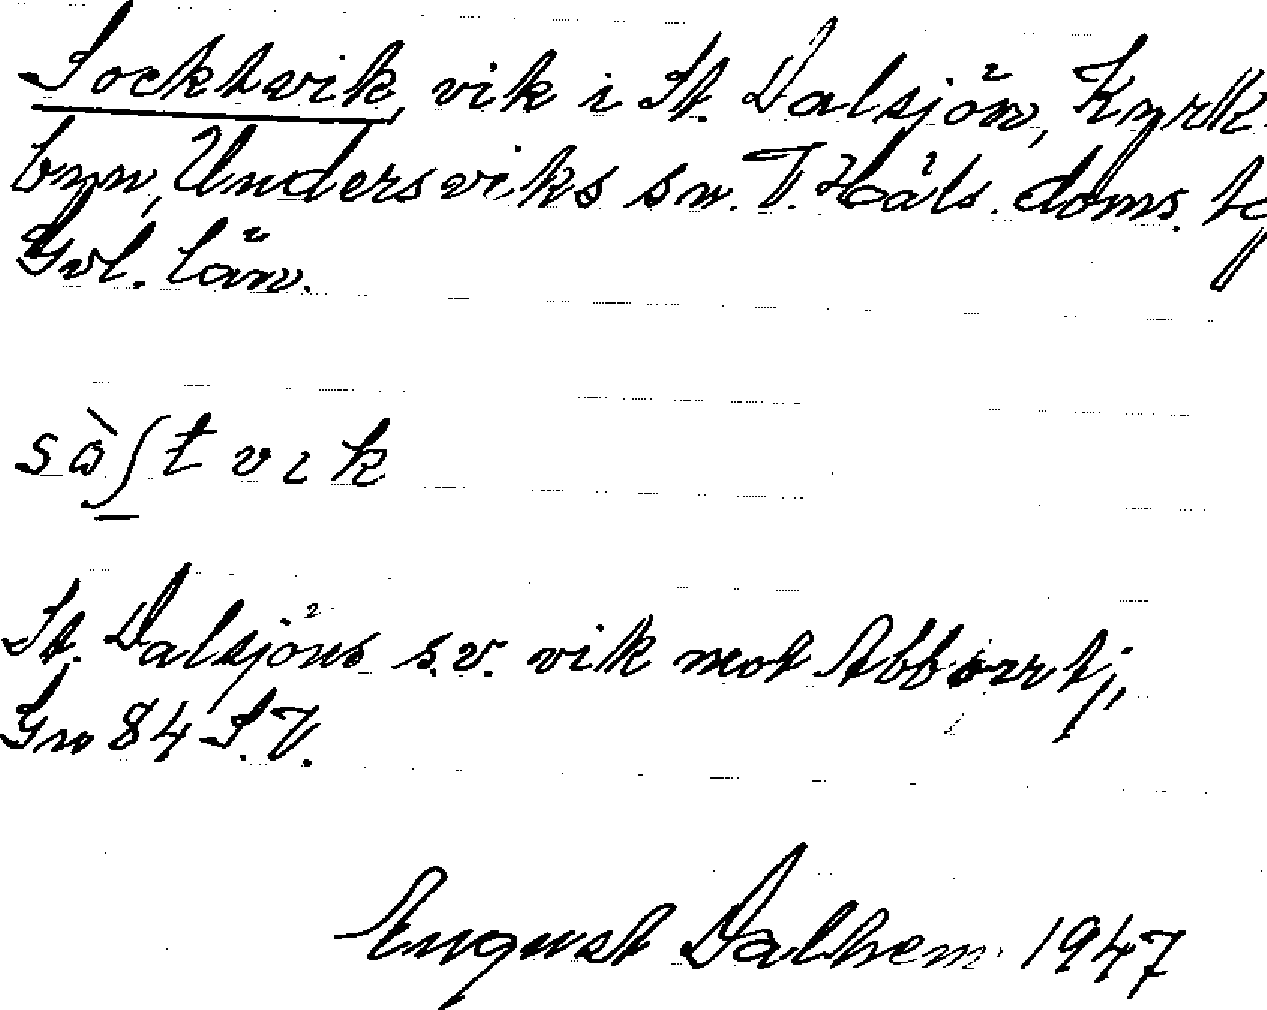 Socktvik, vik i St. Dalsjön, Kyrk-
byn, Undersviks sn. V. Häls. doms. t
Gvl. län.
sàʃt vɩk
St. Dalsjöns s.v. vik mot Abborrtj.,
Gro 84 S.V.
August Dalhem 1947